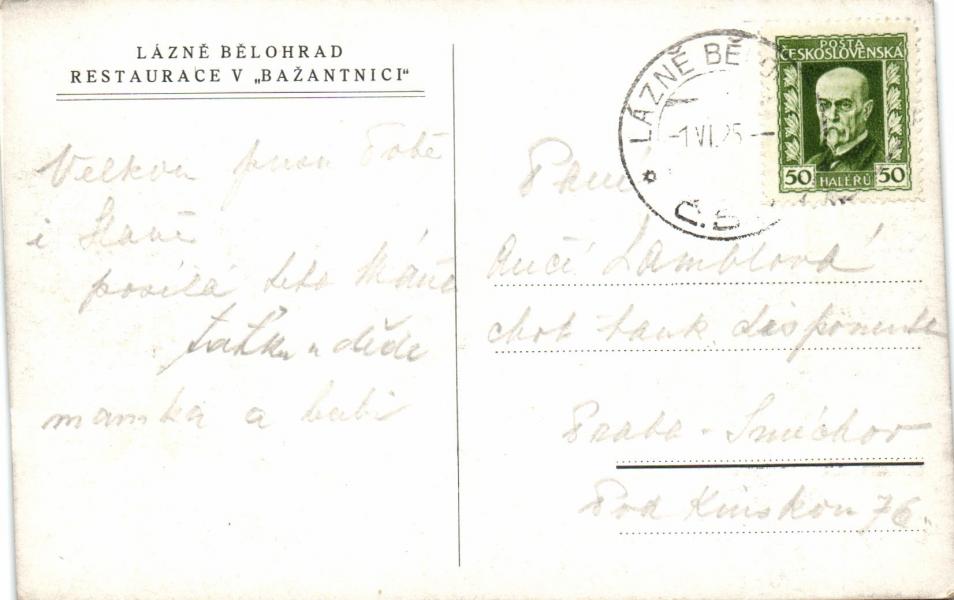 LÁZNĚ BĚLOHRAD
RESTAURACE V „BAŽANTNICI“
Velkou pusu Tobě
i Slávě
posílá teta Máňa
a děde
mamka a babi
LÁZNĚ BĚLO
-1 VI. 25 -
Č.S
POSTA
ČESKOSLOVENSKÁ
50 HALÉŘŮ 50
Paní
Lamblová
choť bank. disponenta
Praha - Smíchov
Pod Kinskou 76.